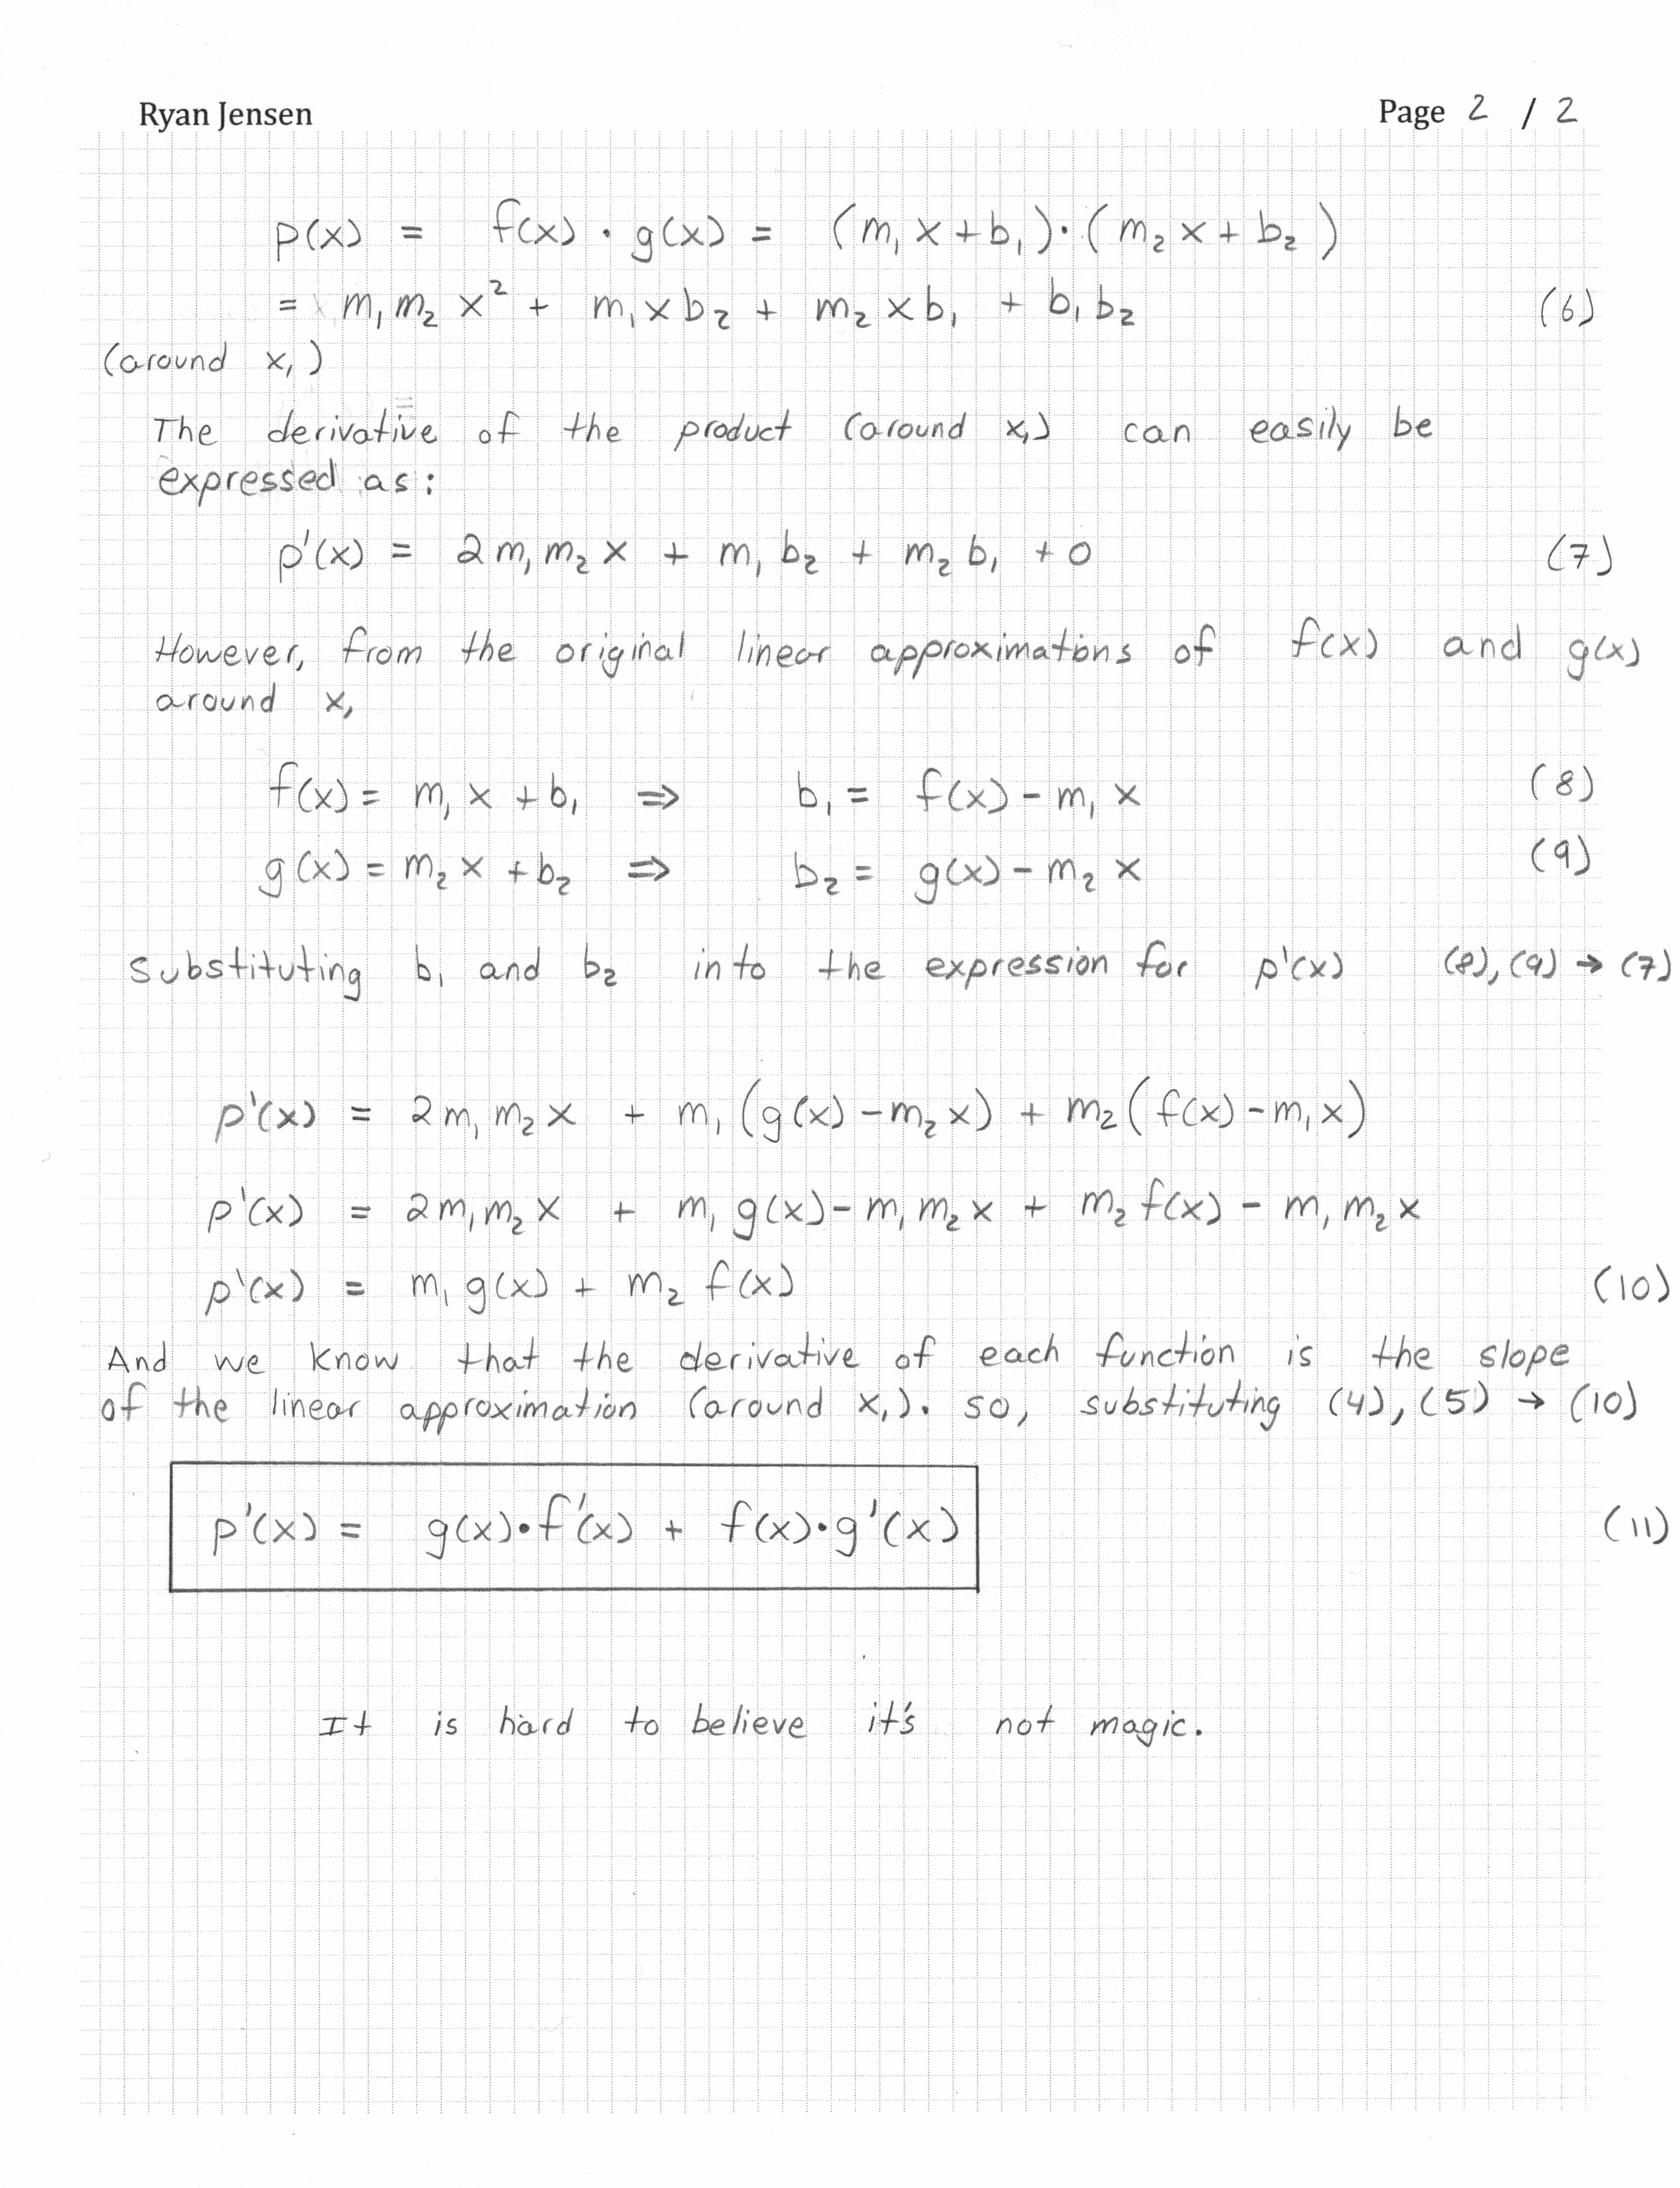 Ryan Jensen Page 2 / 2
p(x) = f(x) · g(x) = (m₁x + b₁)·(m₂x + b₂)
= m₁m₂x² + m₁xb₂ + m₂xb₁ + b₁b₂ (6)
(around x₁)
The derivative of the product (around x₁) can easily be
expressed as:
p'(x) = 2m₁m₂x + m₁b₂ + m₂b₁ + 0 (7)
However, from the original linear approximations of f(x) and g(x)
around x₁
f(x) = m₁x + b₁ ⇒ b₁ = f(x) - m₁x (8)
g(x) = m₂x + b₂ ⇒ b₂ = g(x) - m₂x (9)
substituting b₁ and b₂ into the expression for p'(x) (8), (9) → (7)
p'(x) = 2m₁m₂x + m₁(g(x) - m₂x) + m₂(f(x) - m₁x)
p'(x) = 2m₁m₂x + m₁g(x) - m₁m₂x + m₂f(x) - m₁m₂x
p'(x) = m₁g(x) + m₂f(x) (10)
And we know that the derivative of each function is the slope
of the linear approximation (around x₁). so, substituting (4), (5) → (10)
p'(x) = g(x)·f'(x) + f(x)·g'(x) (11)
It is hard to believe it's not magic.